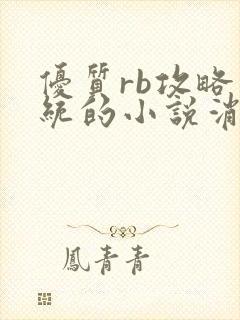 優質rb攻略
統的小說消
鳳青青